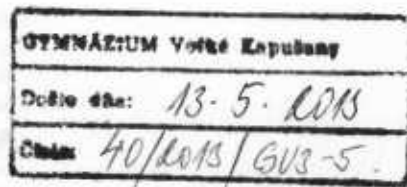 GYMNÁZIUM Veľké Kapušany
Došlo dňa: 13. 5. 2013
Číslo: 40/2013/GV3-5.